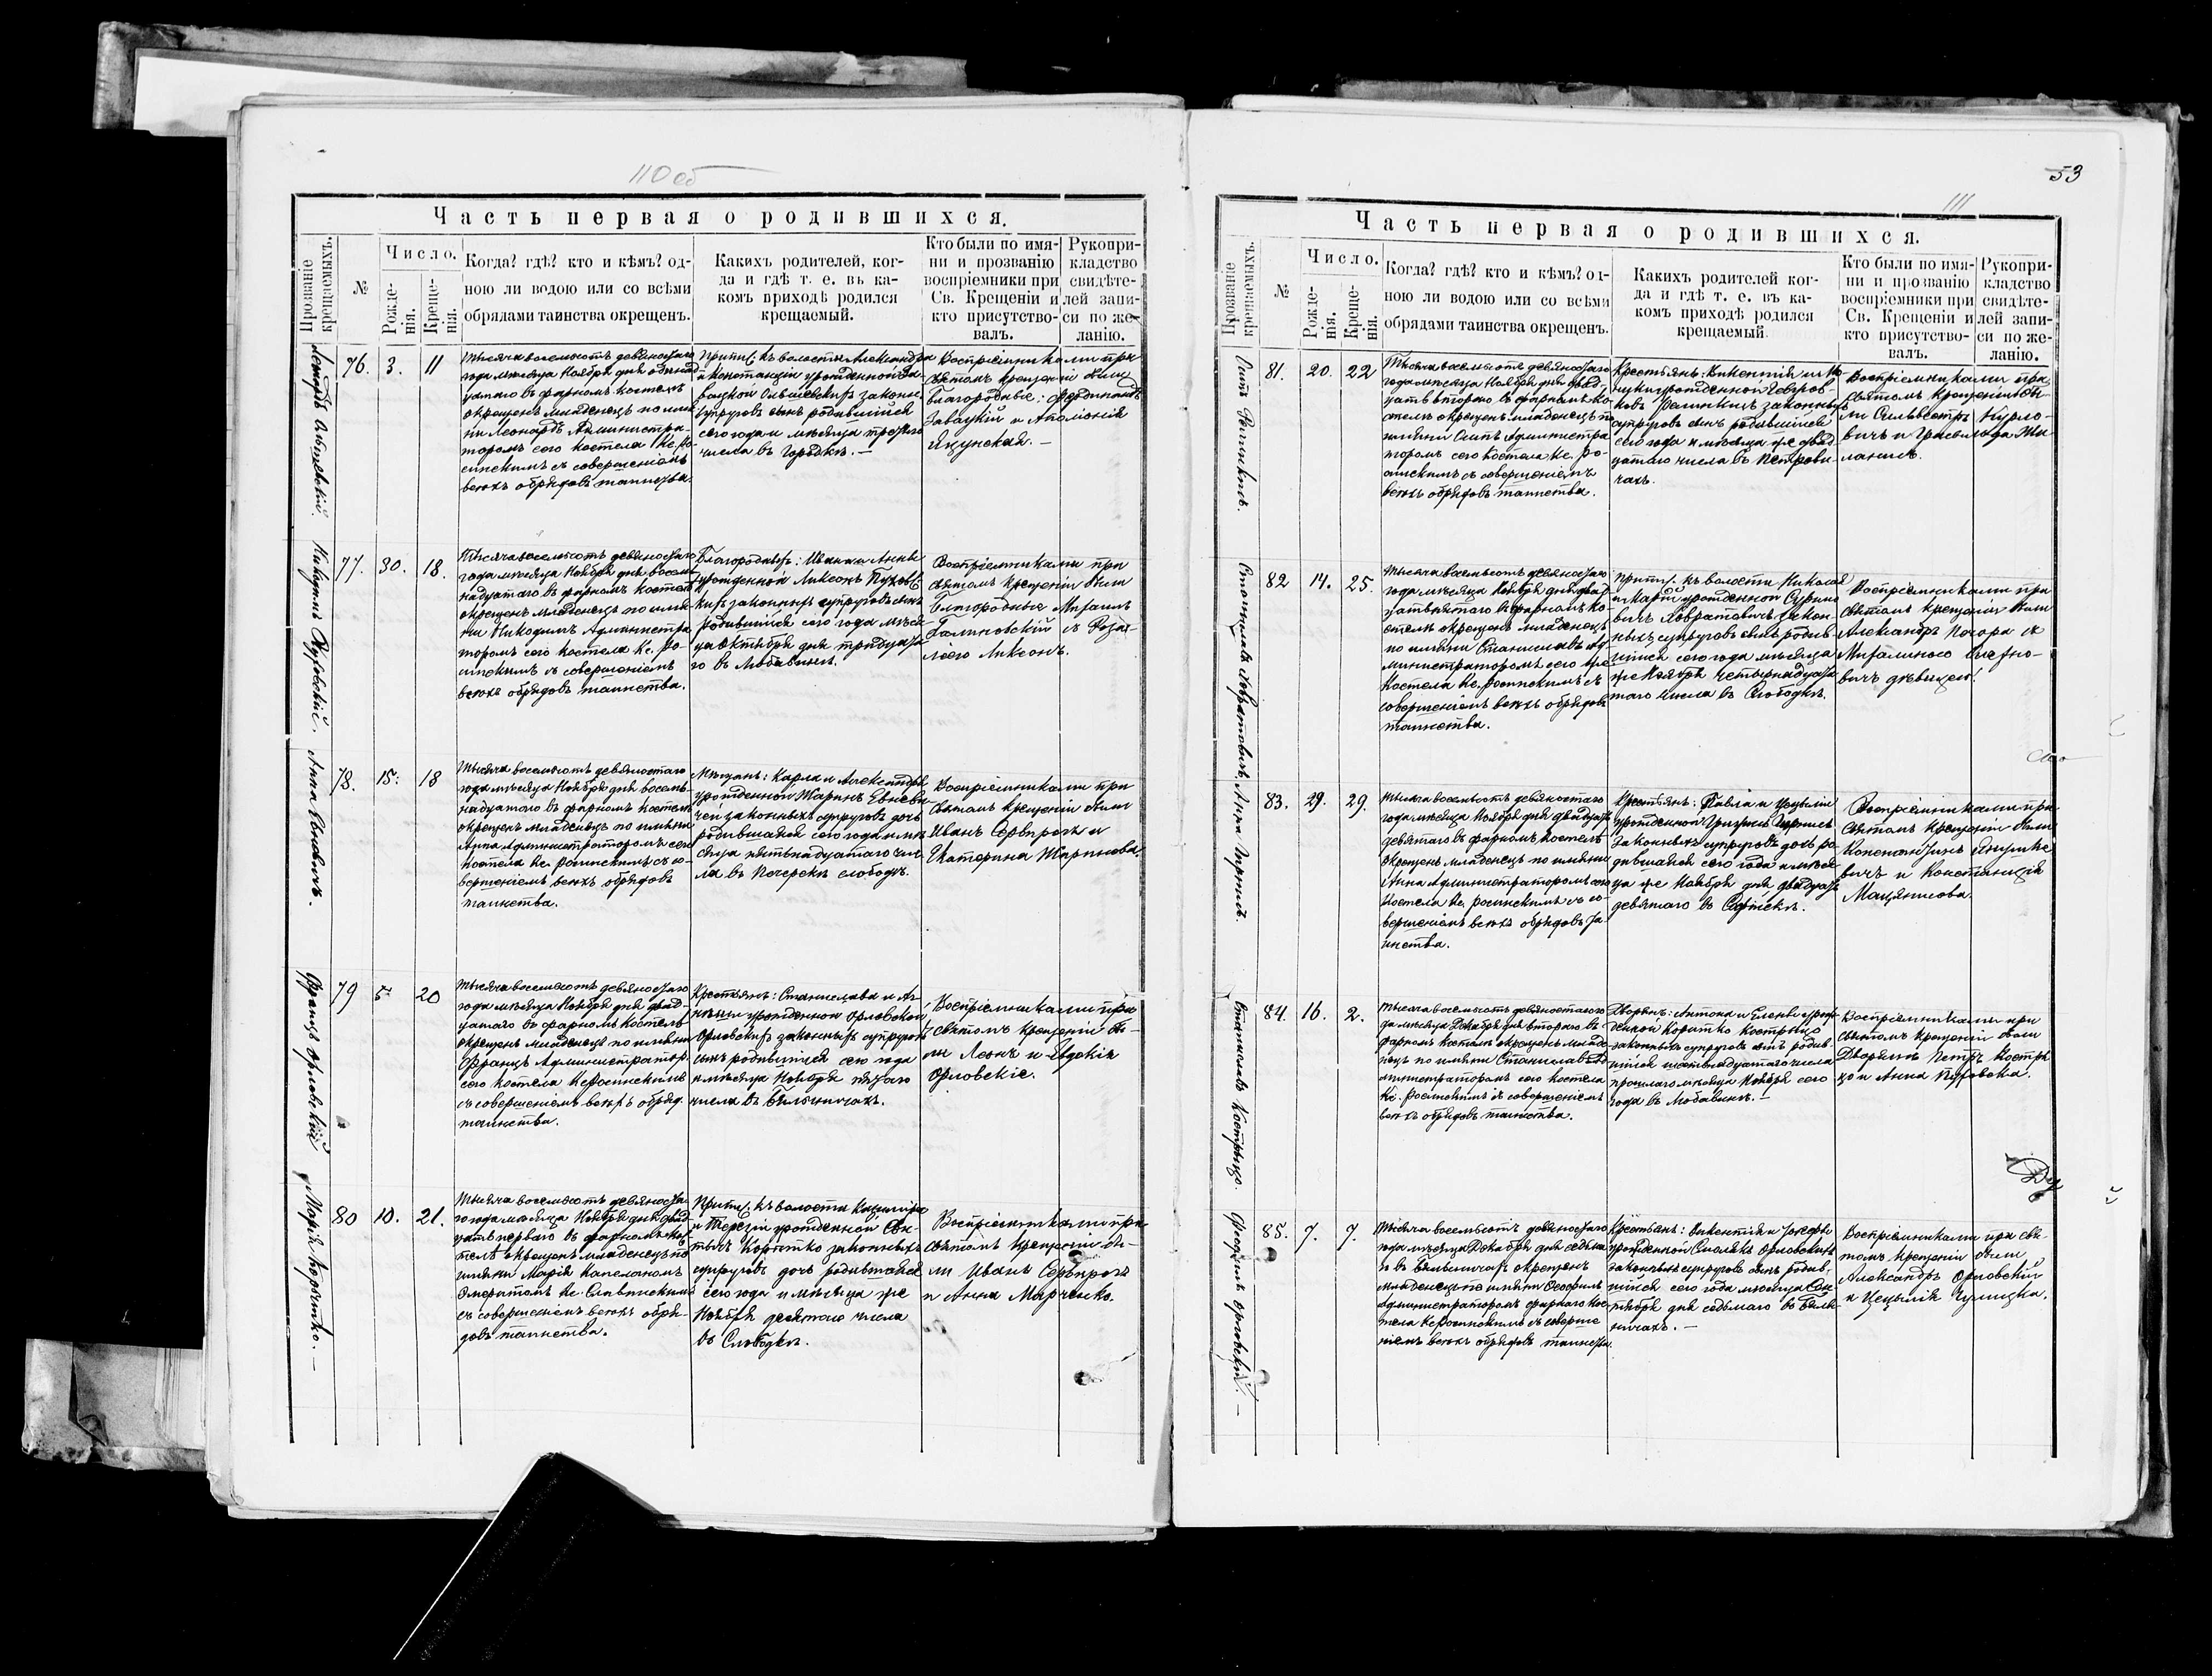 110 об
Часть первая о родившихся.
Прозваніе крещаемыхъ.
№
Число.
Рожденія.
Крещенія.
Когда? гдѣ? кто и кѣмъ? од-
ною ли водою или со всѣми
обрядами таинства окрещенъ.
Какихъ родителей, ког-
да и гдѣ т. е. въ ка-
комъ приходѣ родился
крещаемый.
Кто были по имя-
ни и прозванію
воспріемники при
Св. Крещеніи и
кто присутство-
валъ.
Рукопри-
кладство
свидѣте-
лей запи-
си по же-
ланію.
76. 3. 11
Тысяча восемьсотъ девяностаго
года мѣсяца Ноября дня одинад-
цатаго въ фарномъ костелѣ
окрещенъ младенецъ по име-
ни Леонардъ Администра-
торомъ сего костела Кс. Ро-
синскимъ съ совершеніемъ
всѣхъ обрядовъ таинства.
Припис. къ волости Александра
и Констанціи урожденной За-
вацкой законн.
супруговъ сынъ родившійся
сего года и мѣсяца третьяго
числа въ Городкѣ. —
Воспріемниками при
святомъ крещеніи были
благородные: Фердинандъ
Завацкій и Аполонія
Яцунская. —
Никодимъ Пуховскій.
77. 30. 18.
Тысяча восемьсотъ девяностаго
года мѣсяца Ноября дня восем-
надцатаго въ фарномъ костелѣ
окрещенъ младенецъ по име-
ни Никодимъ Администра-
торомъ сего костела Кс. Ро-
синскимъ съ совершеніемъ
всѣхъ обрядовъ таинства.
Благородныхъ: Ивана и Анны
урожденной Ликсонъ Пуховс-
кихъ законныхъ супруговъ сынъ
родившійся сего года мѣся-
ца Октября дня тридцата-
го въ Любавинѣ.
Воспріемниками при
святомъ крещеніи были
Благородные Михаилъ
Галиновскій съ Роза-
ліею Ликсонъ.
78. 15. 18
Тысяча восемьсотъ девяностаго
года мѣсяца Ноября дня восем-
надцатаго въ фарномъ костелѣ
окрещенъ младенецъ по имени
Анна Администраторомъ сего
костела Кс. Росинскимъ съ со-
вершеніемъ всѣхъ обрядовъ
таинства.
Мѣщанъ: Карла и Александры
урожденной Жаринъ Евневи-
чей законныхъ супруговъ дочь
родившаяся сего года и мѣ-
сяца пятьнадцатаго чис-
ла въ Печерскѣ слободѣ.
Воспріемниками при
святомъ крещеніи были
Иванъ Серопрогъ и
Катерина Жаринова.
Францъ Орловскій
79 5 20
Тысяча восемьсотъ девяностаго
года мѣсяца Ноября дня двад-
цатаго въ фарномъ костелѣ
окрещенъ младенецъ по имени
Францъ Администратор.
сего костела Кс Росинскимъ
съ совершеніемъ всѣхъ обряд.
таинства.
Крестьянъ: Станислава и Аг-
нѣши урожденной Орловской
Орловскихъ законныхъ супруговъ
сынъ родившійся сего года
и мѣсяца Ноября пятаго
числа въ Бѣлыничахъ.
Воспріемниками при
святомъ крещеніи бы-
ли Леонъ и Евдокія
Орловскіе.
Марія Корытко. —
80 10. 21.
Тысяча восемьсотъ девяноста-
го года мѣсяца Ноября дня двад-
цать перваго въ фарномъ кос-
телѣ окрещенъ младенецъ по
имени Марія Капеланомъ
Эмеритомъ Кс. Славинскимъ
съ совершеніемъ всѣхъ обря-
довъ таинства.
Припис. къ волости Казиміра
и Терезіи урожденной
Корытко законныхъ
супруговъ дочь родившаяся
сего года и мѣсяца же
Ноября десятаго числа
въ Слободкѣ.
Воспріемниками при
святомъ крещеніи бы-
ли Иванъ Серопрогъ
и Анна Марченко.
53
111
Часть первая о родившихся.
Прозваніе крещаемыхъ.
№
Число.
Рожденія.
Крещенія.
Когда? гдѣ? кто и кѣмъ? од-
ною ли водою или со всѣми
обрядами таинства окрещенъ.
Какихъ родителей ког-
да и гдѣ т. е. въ ка-
комъ приходѣ родился
крещаемый.
Кто были по имя-
ни и прозванію
воспріемники при
Св. Крещеніи и
кто присутство-
валъ.
Рукопри-
кладство
свидѣте-
лей запи-
си по же-
ланію.
81. 20. 22
Тысяча восемьсотъ девяностаго
года мѣсяца Ноября дня двад-
цать втораго въ фарномъ ко-
стелѣ окрещенъ младенецъ по
имени Осипъ Администра
торомъ сего костела Кс. Ро-
синскимъ съ совершеніемъ
всѣхъ обрядовъ таинства.
Крестьянъ: Викентія и
урожденной
законныхъ
супруговъ сынъ родившійся
сего года и мѣсяца же двад-
цатаго числа въ Петрови-
чахъ.
Воспріемниками при
святомъ крещеніи бы-
ли Сильвестръ Курло-
вичъ и
Станиславъ Довратовичъ.
82 14. 25.
Тысяча восемьсотъ девяностаго
года мѣсяца Ноября дня двад-
цать пятаго въ фарномъ ко-
стелѣ окрещенъ младенецъ
по имени Станиславъ Ад-
министраторомъ сего же
костела Кс. Росинскимъ съ
совершеніемъ всѣхъ обрядовъ
таинства.
Припис. къ волости Николая
и Маріи урожденной
Довратовичъ закон-
ныхъ супруговъ сынъ родив-
шійся сего года мѣсяца
же Ноября четырнадцата-
таго числа въ Слободкѣ.
Воспріемниками при
святомъ крещеніи были
Александръ Погора съ
Михалиною
вичъ дѣвицею.
83. 29. 29.
Тысяча восемьсотъ девяностаго
года мѣсяца Ноября дня двадцать
девятаго въ фарномъ костелѣ
окрещенъ младенецъ по имени
Анна Администраторомъ сего
костела Кс. Росинскимъ съ со-
вершеніемъ всѣхъ обрядовъ та-
инства.
Крестьянъ: Павла и Цециліи
урожденной
законныхъ супруговъ дочь ро-
дившаяся сего года и мѣся-
ца же Ноября дня двадцать
девятаго въ
Воспріемниками при
святомъ крещеніи были
Константинъ
вичъ и Констанція
Мацянисова.
Станиславъ Кострыцо.
84. 16. 2.
Тысяча восемьсотъ девяностаго го-
да мѣсяца Декабря дня втораго въ
фарномъ костелѣ окрещенъ младе-
нецъ по имени Станиславъ Ад-
министраторомъ сего костела
Кс. Росинскимъ съ совершеніемъ
всѣхъ обрядовъ таинства.
Дворянъ: Антона и Елены урож-
денной Корытко Кострыцо
законныхъ супруговъ сынъ родив-
шійся шестьнадцатаго числа
прошлаго мѣсяца Ноября сего
года въ Любавинѣ. —
Воспріемниками при
святомъ крещеніи были
Дворяне Петръ Костры-
цо и Анна Пуховска.
Теофилъ Орловскій. —
85. 7. 7.
Тысяча восемьсотъ девяностаго
года мѣсяца Декабря дня седьма-
го въ Бѣлыничахъ окрещенъ
младенецъ по имени Теофилъ
Администраторомъ фарнаго кос-
тела Кс Росинскимъ съ соверше-
ніемъ всѣхъ обрядовъ таинства.
Крестьянъ: Викентія и Юзефы
урожденной Смолякъ Орловскихъ
законныхъ супруговъ сынъ родив-
шійся сего года мѣсяца
дня седьмаго въ Бѣлы-
ничахъ. —
Воспріемниками при свя-
томъ крещеніи были
Александръ Орловскій
и Цецылія